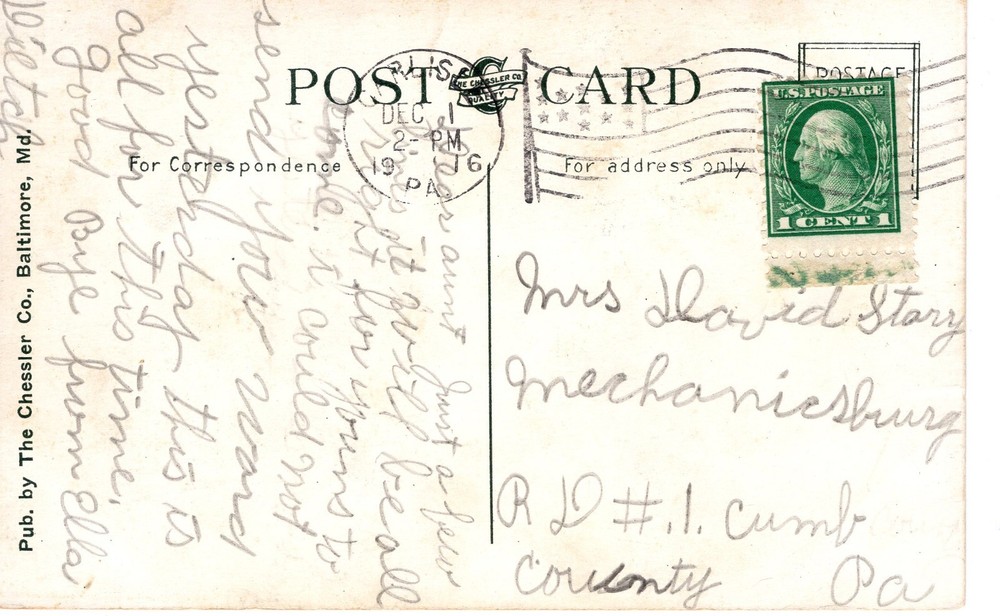 POST CARD
THE CHESSLER CO.
QUALITY
For Correspondence
For address only
POSTAGE
U.S. POSTAGE
1 CENT 1
DEC 1
2-PM
19 16
PA.
Pub. by The Chessler Co., Baltimore, Md.
Dear aunt Just a few
lines it will be all
right for yous to
come. i could not
send you ward
yesterday this is
all for this time,
good Bye from Ella
Mrs David Stary
Mechanicsburg
R D #.1. Cumb
County Pa